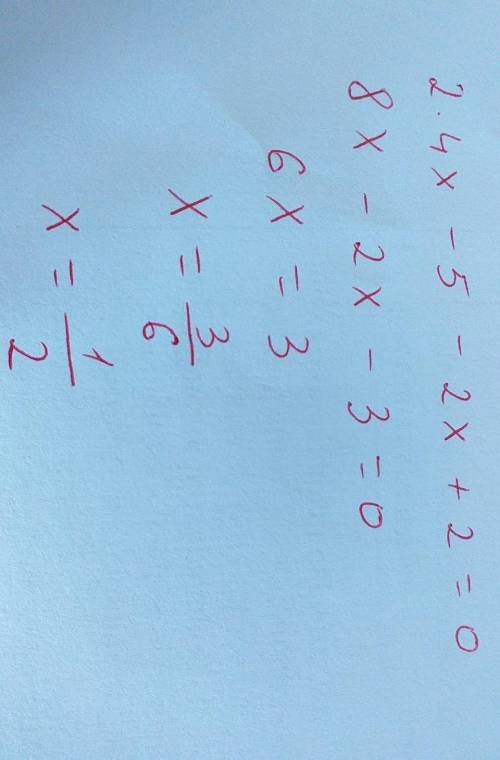 2·4x - 5 - 2x + 2 = 0
8x - 2x - 3 = 0
6x = 3
x = 3/6
x = 1/2